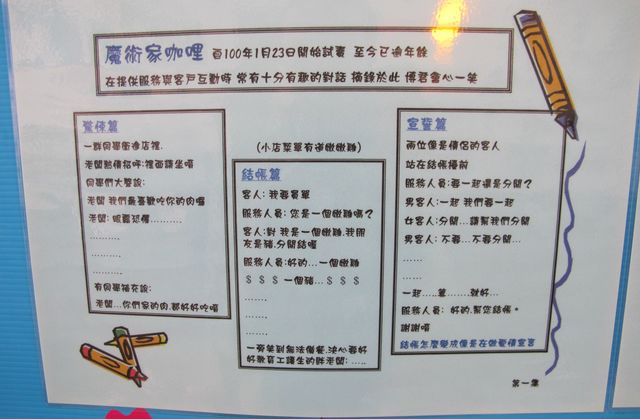 魔術家咖哩 自100年1月23日開始試賣 至今已逾年餘
在提供服務與客戶互動時 常有十分有趣的對話 摘錄於此 博君會心一笑
驚悚篇
一群同學衝進店裡.
老闆熱情招呼:裡面請坐唷
同學們大聲說:
老闆 我們最喜歡吃你的肉囉
老闆: 眼露恐懼..........
..........
..........
..........
有同學補充說:
老闆...你們家的肉.都好好吃唷
(小店菜單有道嫩嫩雞)
結帳篇
客人: 我要買單
服務人員: 您是一個嫩雞嗎?
客人:對 我是一個嫩雞.我朋
友是豬.分開結喔
服務人員:好的...一個嫩雞
$ $ $ 一個豬...$ $ $
.......
.......
.......
一旁笑到無法備餐.決心要好
好教育工讀生的胖老闆: .....
宣誓篇
兩位像是情侶的客人
站在結帳檯前
服務人員:要一起還是分開?
男客人:一起 我們要一起
女客人:分開...請幫我們分開
男客人: 不要...不要分開...
......
......
一起....算......就好...
服務人員: 好的.幫您結帳。
謝謝唷
結帳怎麼變成像是在做愛情宣言
第一集